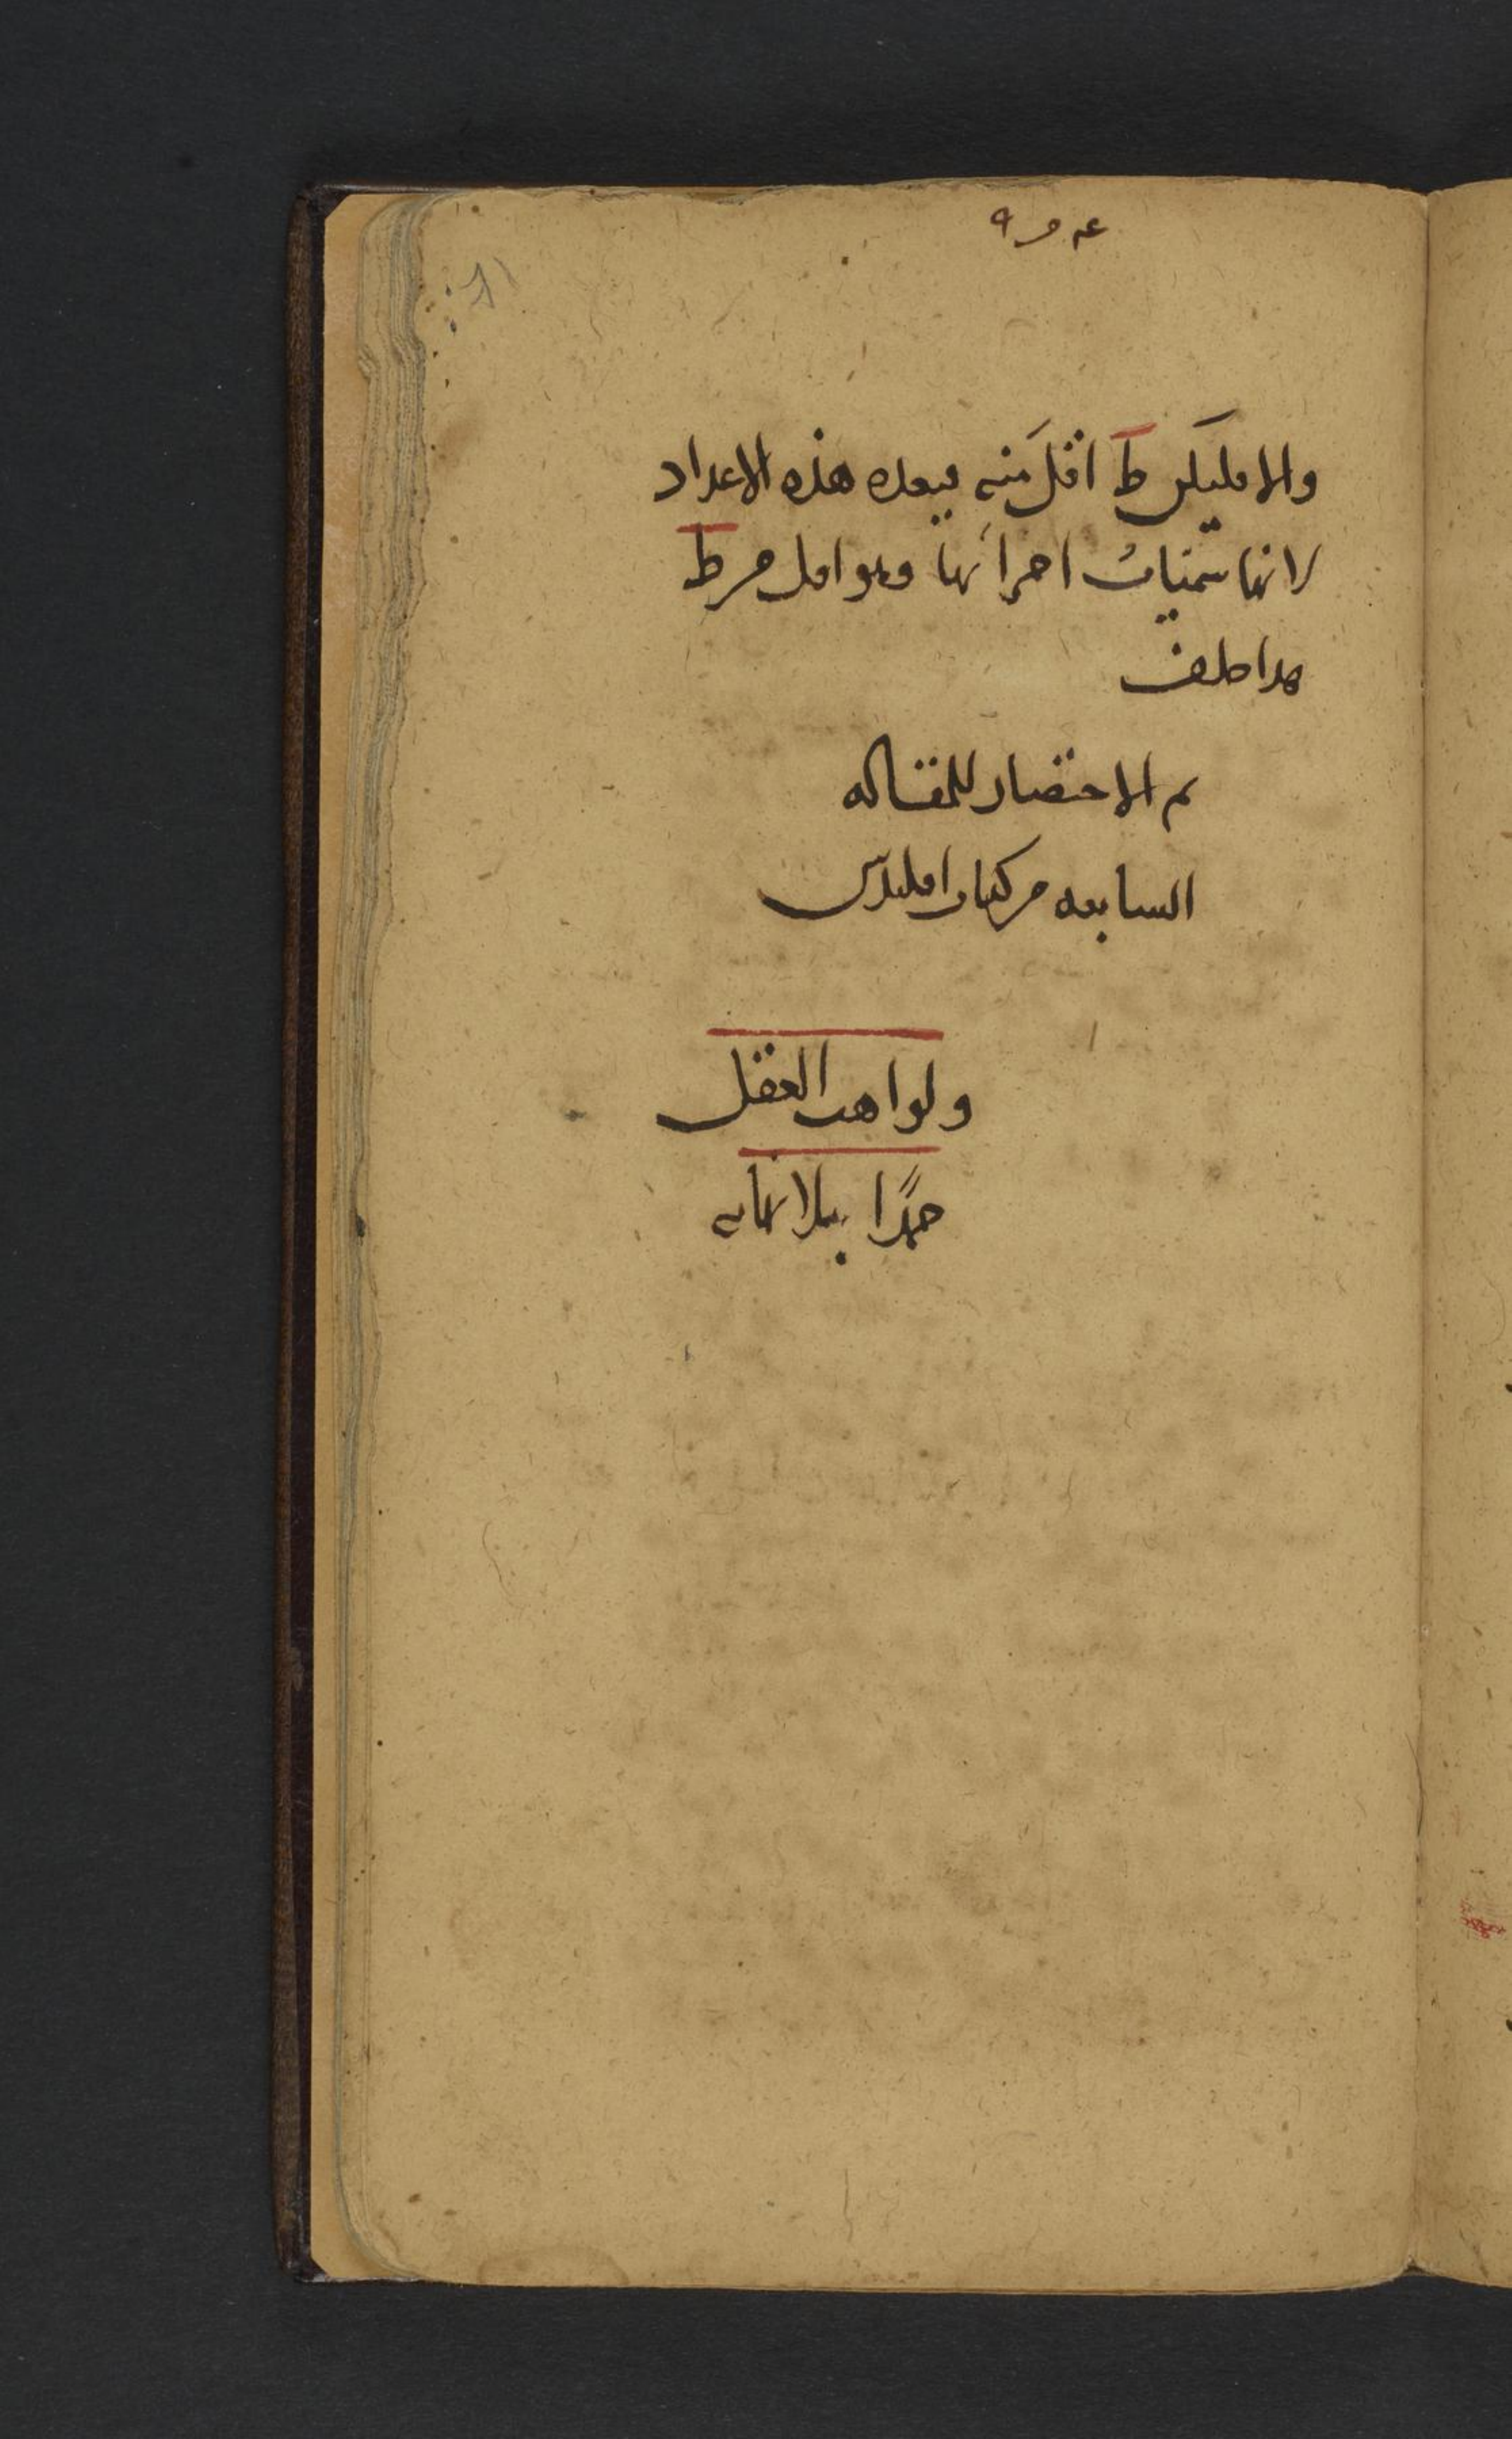 والا فليكن ط اقل منه فيعده هذه الاعداد
لانها سميات اجزائها وهو اقل من ط
هذا خلف
تم الاختصار للمقاله
السابعه من كتاب اقليدس
ولواهب العقل
حمدًا بلا نهايه